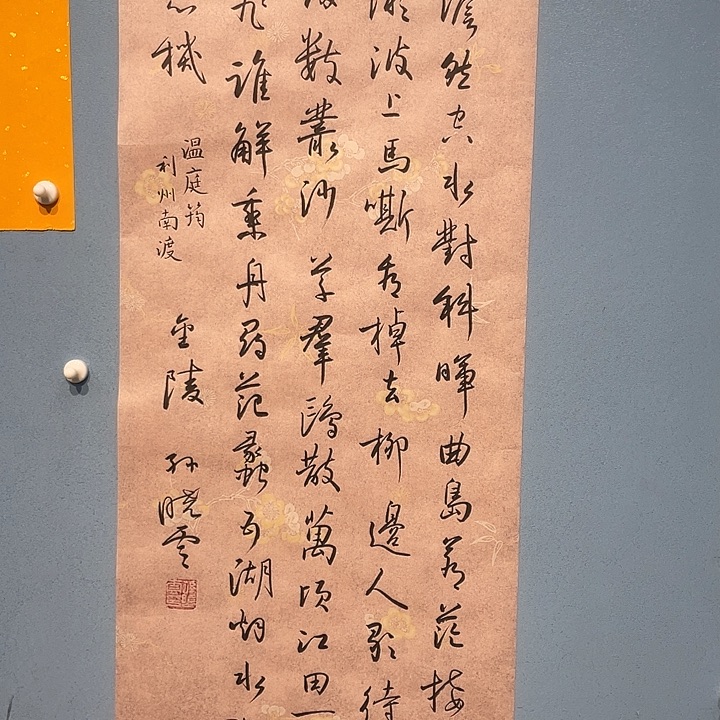 澹然空水對斜暉曲島蒼茫接
微波上馬嘶看棹去柳邊人歇待
歸數叢沙草羣鷗散萬頃江田一
飛誰解乘舟尋范蠡五湖烟水
忘機
温庭筠
利州南渡
金陵 孫曉雲